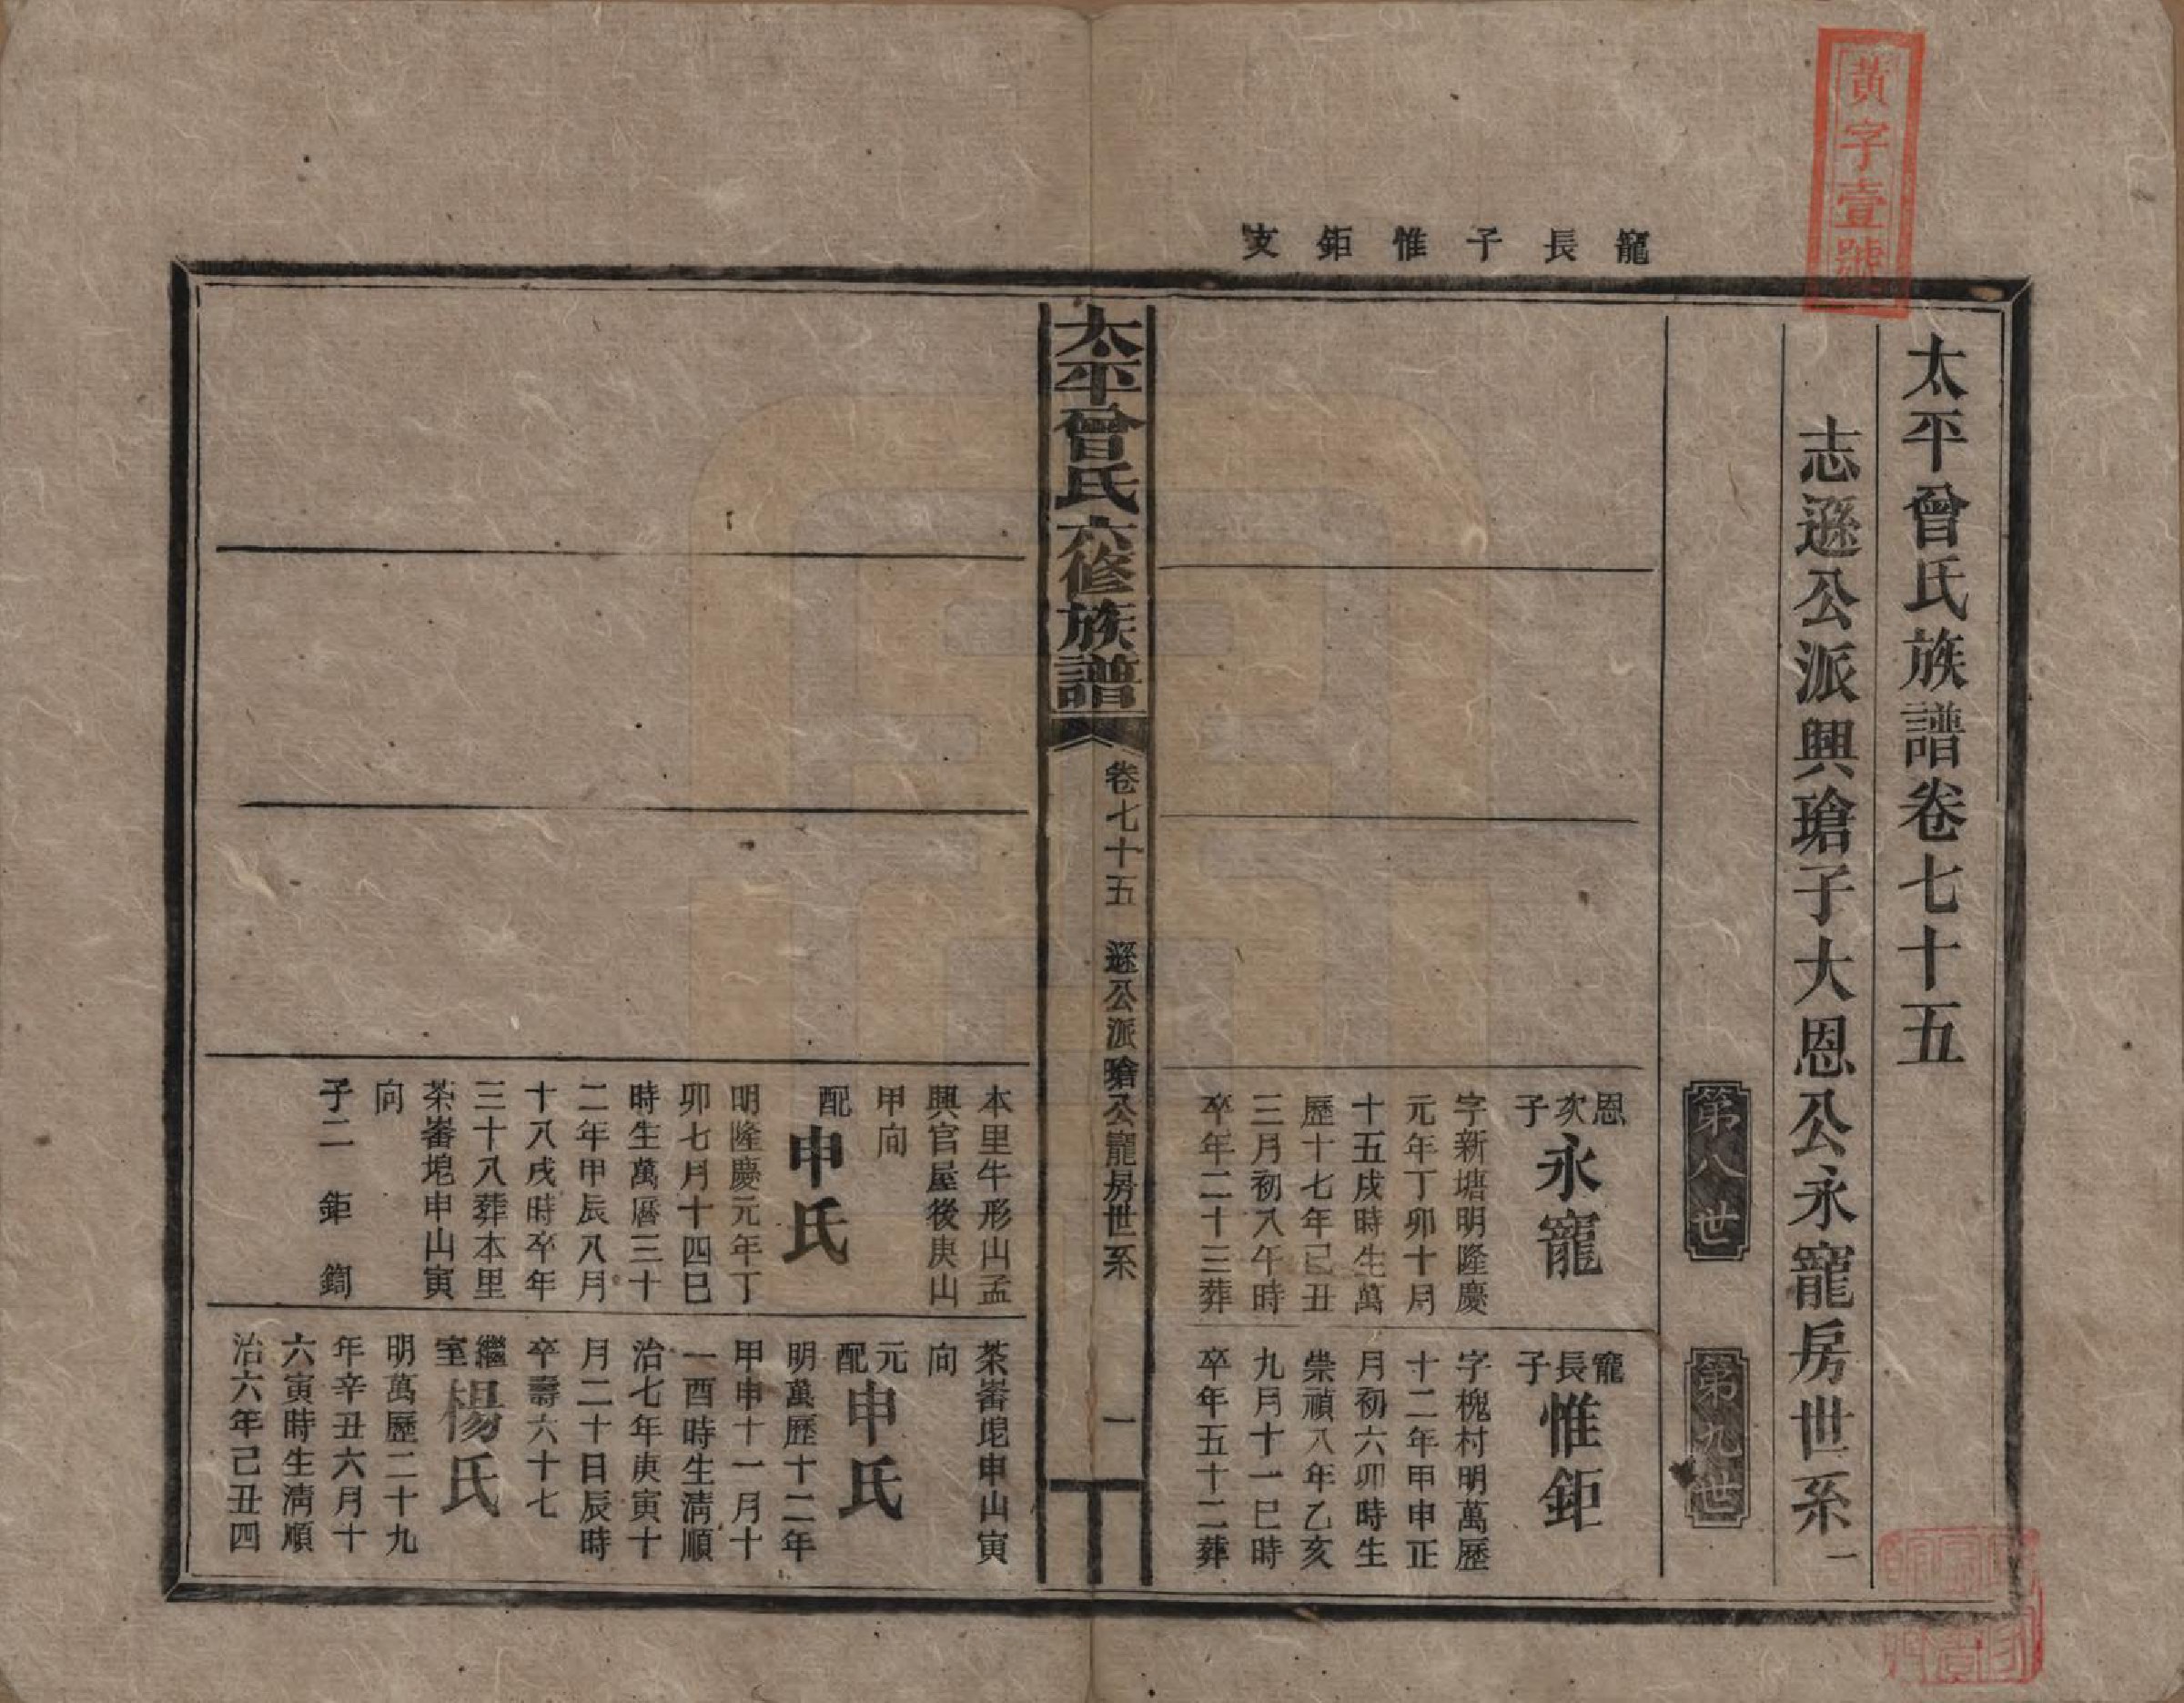 黃字壹號
寵長子惟鉅支
太平曾氏族譜卷七十五
志遜公派興瑲子大恩公永寵房世系一
第八世
第九世
恩次子
永寵
字新塘明隆慶
元年丁卯十月
十五戌時生萬
歷十七年己丑
三月初八午時
卒年二十三葬
寵長子
惟鉅
字槐村明萬歷
十二年甲申正
月初六卯時生
崇禎八年乙亥
九月十一巳時
卒年五十二葬
太平曾氏六修族譜
卷七十五
遜公派瑲公寵房世系
一
本里牛形山孟
興官屋後庚山
甲向
配
申氏
明隆慶元年丁
卯七月十四巳
時生萬曆三十
二年甲辰八月
十八戌時卒年
三十八葬本里
茶崙堍申山寅
向
子二 鉅 鐫
茶崙堍申山寅
向
元配
申氏
明萬歷十二年
甲申十一月十
一酉時生清順
治七年庚寅十
月二十日辰時
卒壽六十七
繼室
楊氏
明萬歷二十九
年辛丑六月十
六寅時生清順
治六年己丑四